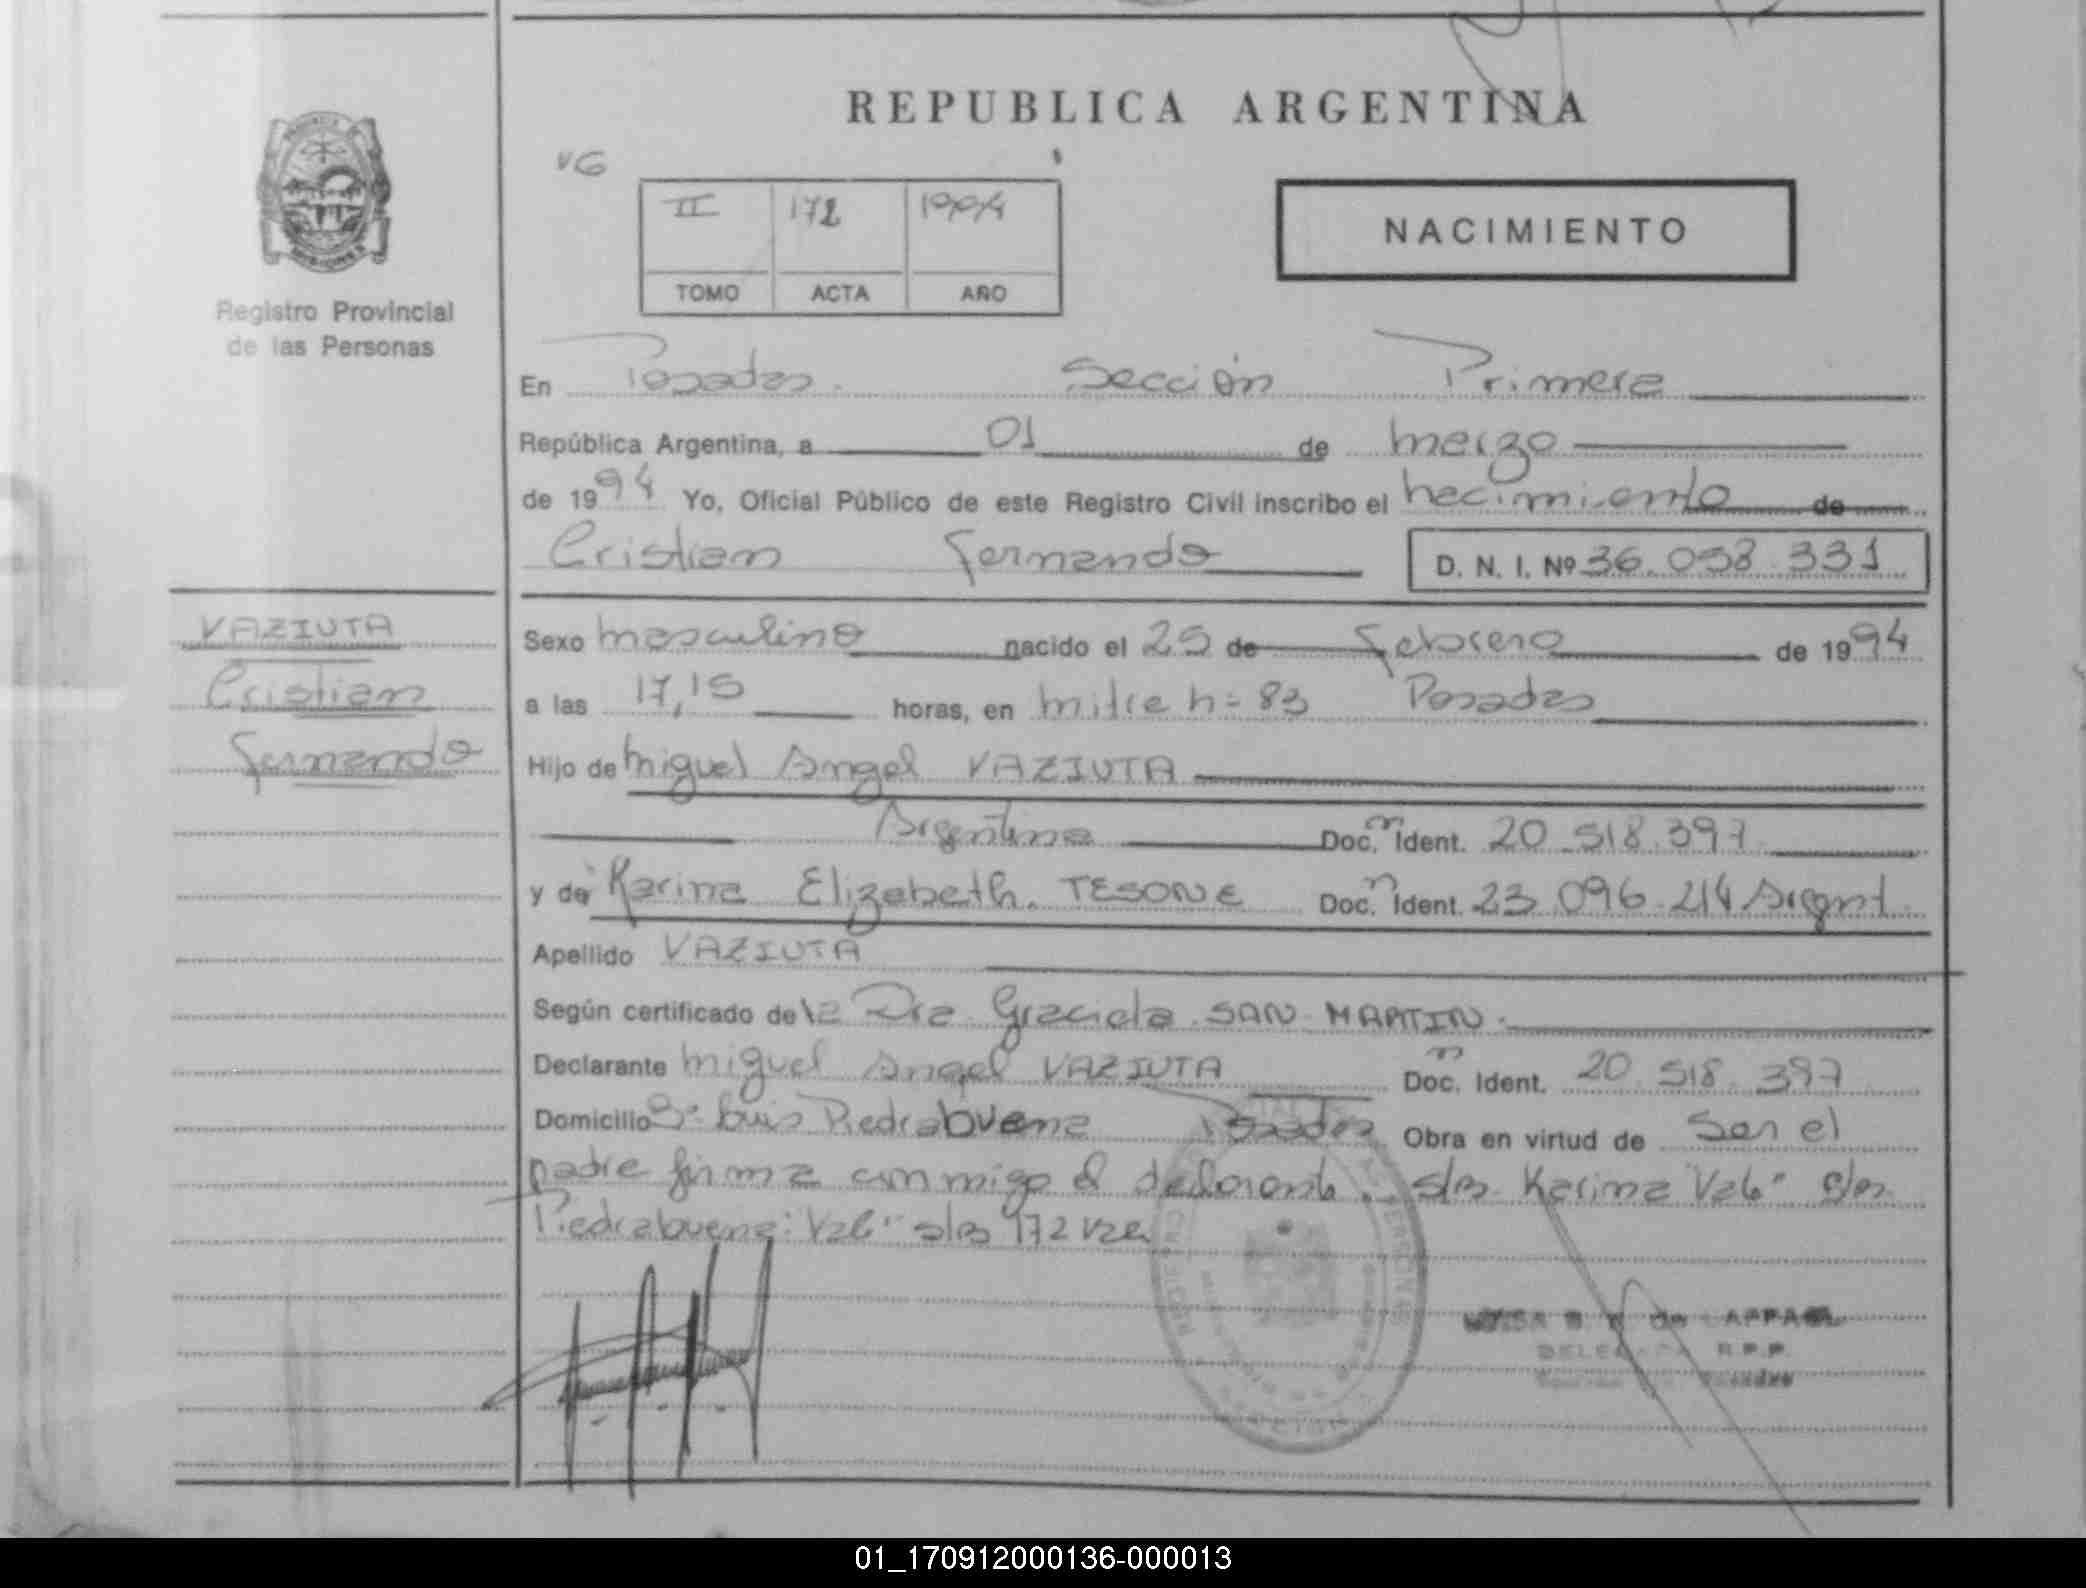 REPUBLICA ARGENTINA
VG
II 172 1994
TOMO ACTA AÑO
NACIMIENTO
Registro Provincial
de las Personas
En Posadas. Sección Primera
República Argentina, a 01 de marzo
de 1994 Yo, Oficial Público de este Registro Civil inscribo el nacimiento de
Cristian Fernando D. N. I. Nº 36.058.331
VAZIUTA
Cristian
Fernando
Sexo masculino nacido el 25 de Febrero de 1994
a las 17,15 horas, en mitre n= 83 Posadas
Hijo de Miguel Angel VAZIUTA
Argentina Doc. Ident. 20.518.397
y de Karina Elizabeth. TESONE Doc. Ident. 23.096.214 Argent.
Apellido VAZIUTA
Según certificado de la Dra Graciela SAN MARTIN.
Declarante Miguel Angel VAZIUTA Doc. Ident. 20.518.397
Domicilio Luis Piedrabuena Posadas Obra en virtud de Ser el
padre firma conmigo el declarante. s/as Karina Vale" s/as
Piedrabuena: Vale" s/as 172 vale
DELEGADA R.P.P.
01_170912000136-000013